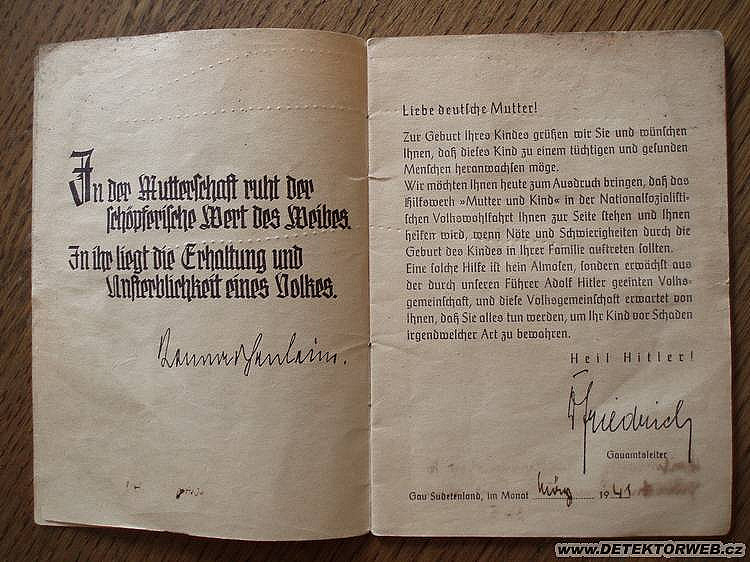 In der Mutterschaft ruht der
schöpferische Wert des Weibes.
In ihr liegt die Erhaltung und
Unsterblichkeit eines Volkes.
Liebe deutsche Mutter!
Zur Geburt Ihres Kindes grüßen wir Sie und wünschen
Ihnen, daß dieses Kind zu einem tüchtigen und gesunden
Menschen heranwachsen möge.
Wir möchten Ihnen heute zum Ausdruck bringen, daß das
Hilfswerk »Mutter und Kind« in der Nationalsozialisti-
schen Volkswohlfahrt Ihnen zur Seite stehen und Ihnen
helfen wird, wenn Nöte und Schwierigkeiten durch die
Geburt des Kindes in Ihrer Familie auftreten sollten.
Eine solche Hilfe ist kein Almosen, sondern erwächst aus
der durch unseren Führer Adolf Hitler geeinten Volks-
gemeinschaft, und diese Volksgemeinschaft erwartet von
Ihnen, daß Sie alles tun werden, um Ihr Kind vor Schaden
irgendwelcher Art zu bewahren.
Heil Hitler!
Friedrich
Gauamtsleiter
Gau Sudetenland, im Monat März 1941
www.DETEKTORWEB.cz